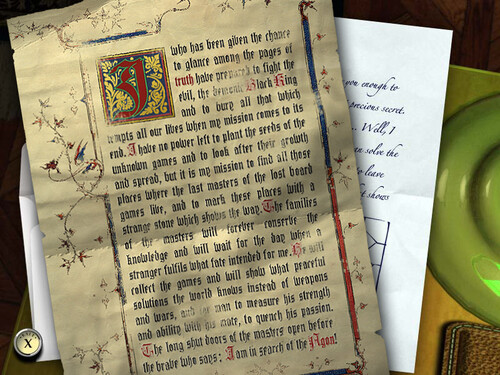 I who has been given the chance
to glance among the pages of
truth have prepared to fight the
evil, the demonic Black King
and to bury all that which
tempts all our lives when my mission comes to its
end. I have no power left to plant the seeds of the
unknown games and to look after their growth
and spread, but it is my mission to find all those
places where the last masters of the lost board
games live, and to mark these places with a
strange stone which shows the way. The families
of the masters will forever conserve the
knowledge and will wait for the day when a
stranger fulfils what fate intended for me. He will
collect the games and will show what peaceful
solutions the world knows instead of weapons
and wars, and for man to measure his strength
and ability with his mate, to quench his passion.
The long shut doors of the masters open before
the brave who says: I am in search of the Agon!
you enough to
precious secret.
... Well, I
can solve the
to leave
shows
X